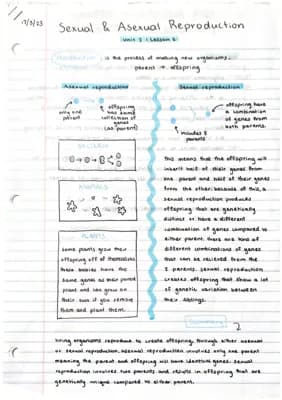 11/3/23
Sexual & Asexual Reproduction
Unit 2 : Lesson 2
Reproduction is the process of making new organisms.
parent → offspring
Asexual reproduction
only one
parent
offspring
has same
collection of
genes
(as parent)
Sexual reproduction
offspring have
a combination
of genes from
both parents.
includes 2
parents
ANIMALS
PLANTS
some plants grow their
offspring off of themselves
these babies have the
same genes as their parent
plant and can grow on
their own if you remove
them and plant them.
This means that the offspring will
inherit half of their genes from
one parent and half of their genes
from the other. because of this, a
sexual reproduction produces
offspring that are genetically
distinct or have a different
combination of genes compared to
either parent. there are tons of
different combinations of genes
that can be received from the
2 parents. sexual reproduction
creates offspring that show a lot
of genetic variation between
their siblings.
Summary
living organisms reproduce to create offspring through either asexual
or sexual reproduction. asexual reproduction involves only one parent
meaning the parent and offspring will have identical genes. sexual
reproduction involves two parents and results in offspring that are
genetically unique compared to either parent.